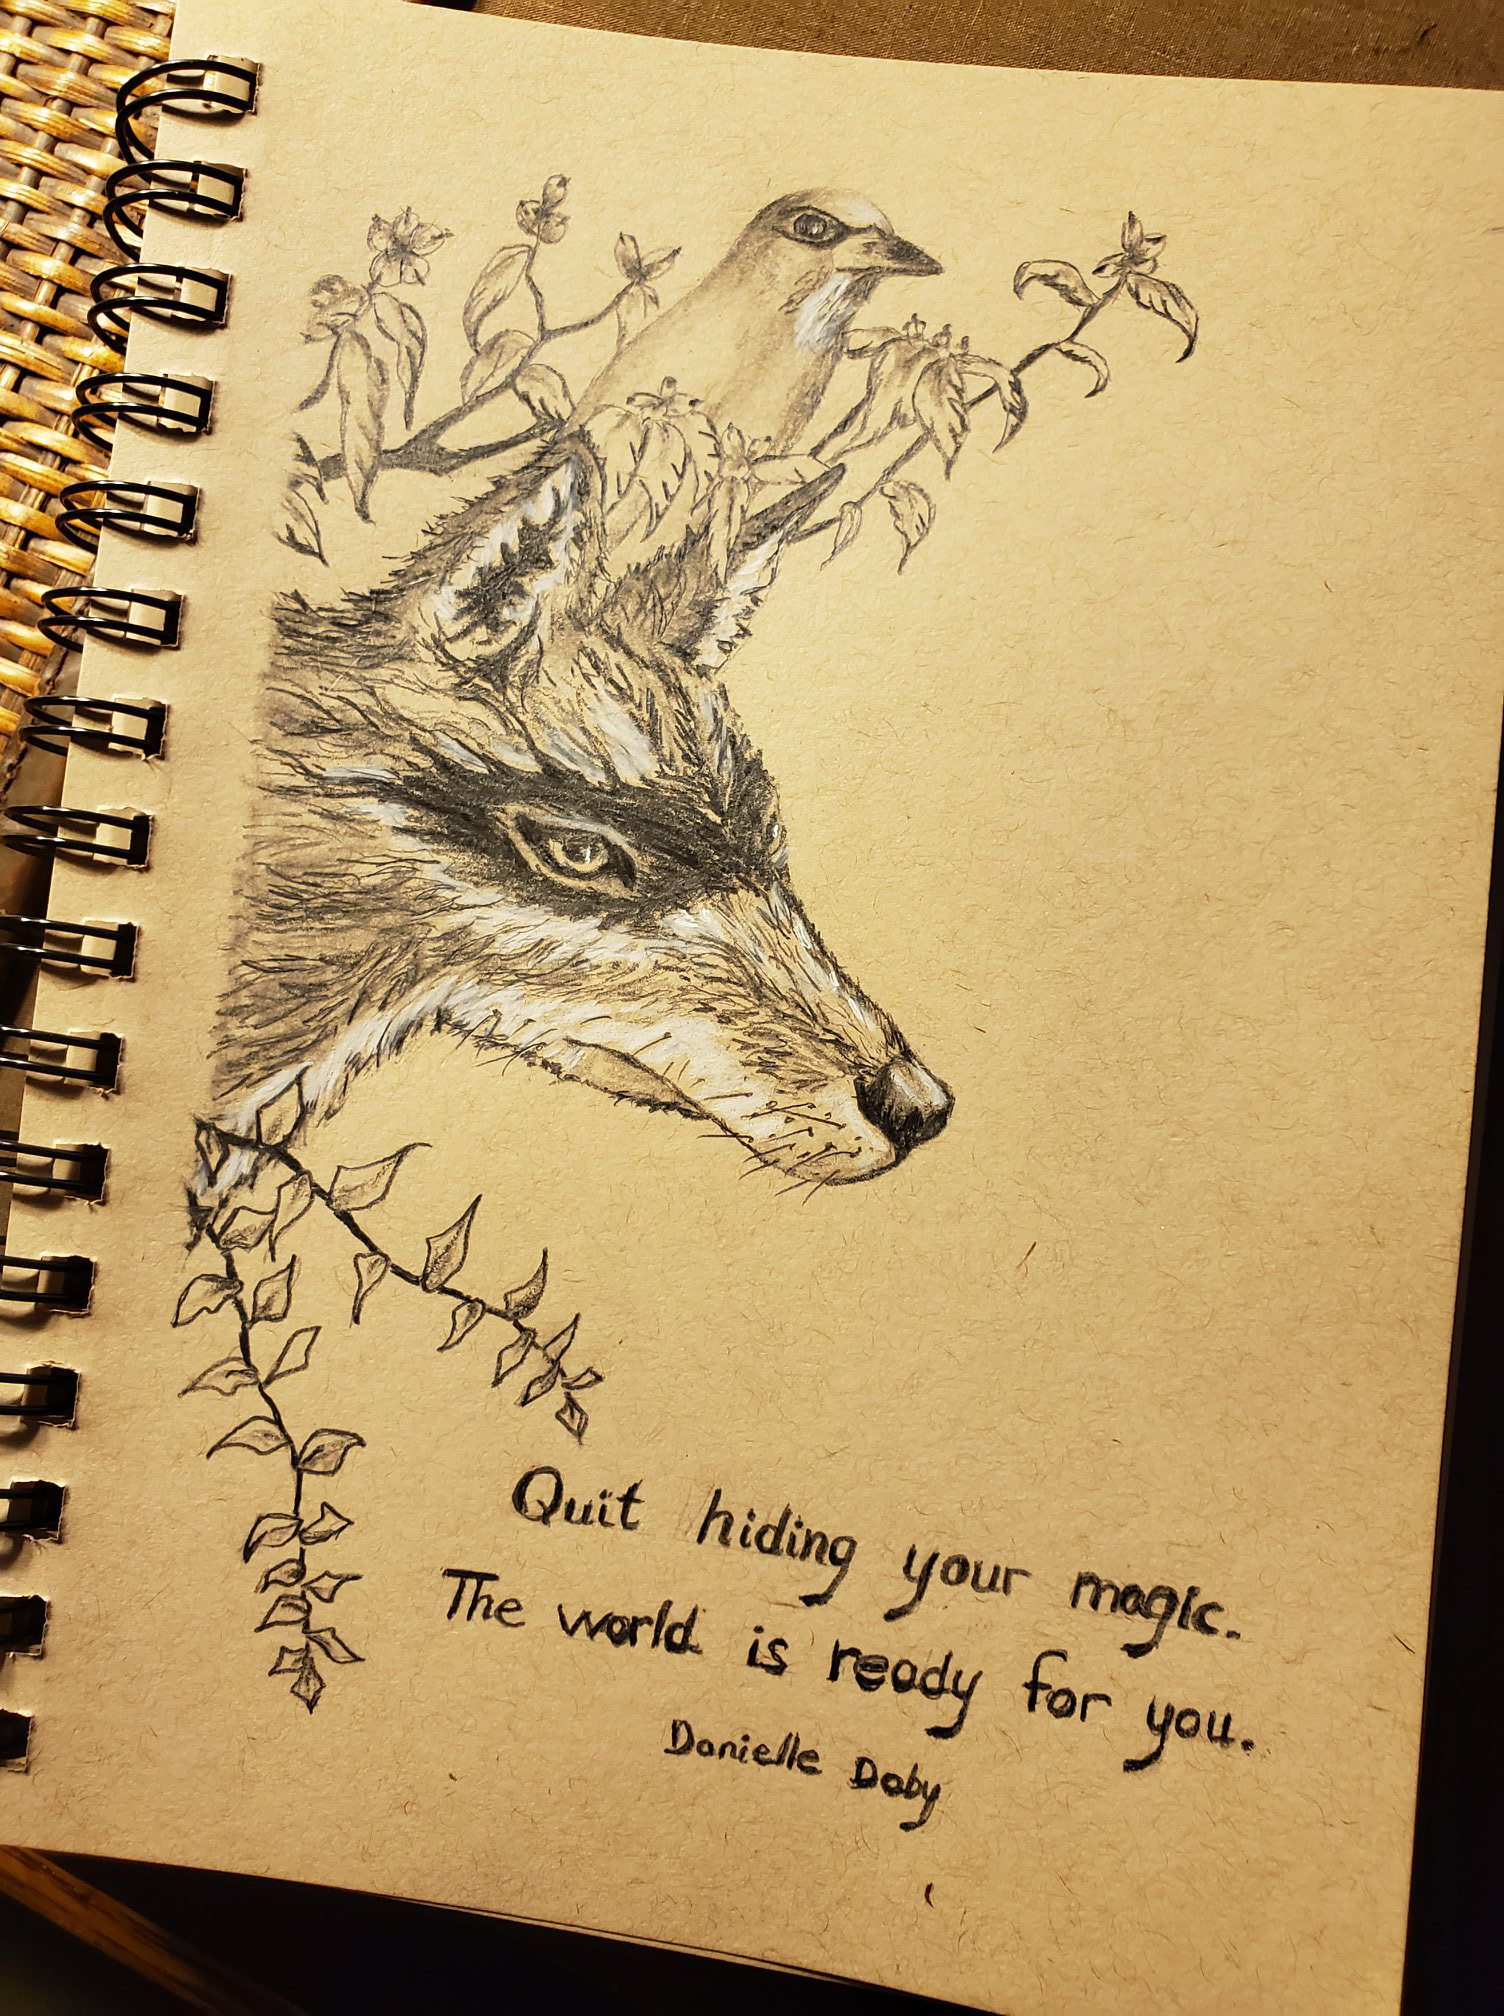 Quit hiding your magic.
The world is ready for you.
Danielle Doby